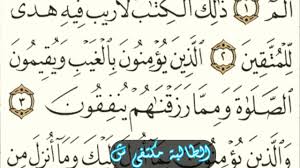 الٓمٓ ١ ذَٰلِكَ ٱلْكِتَٰبُ لَا رَيْبَ فِيهِ هُدًى
لِّلْمُتَّقِينَ ٢ ٱلَّذِينَ يُؤْمِنُونَ بِٱلْغَيْبِ وَيُقِيمُونَ
ٱلصَّلَوٰةَ وَمِمَّا رَزَقْنَٰهُمْ يُنفِقُونَ ٣
الطالبة مكتفي ش
وَٱلَّذِينَ يُؤْمِنُونَ إِلَيْكَ وَمَآ أُنزِلَ مِن